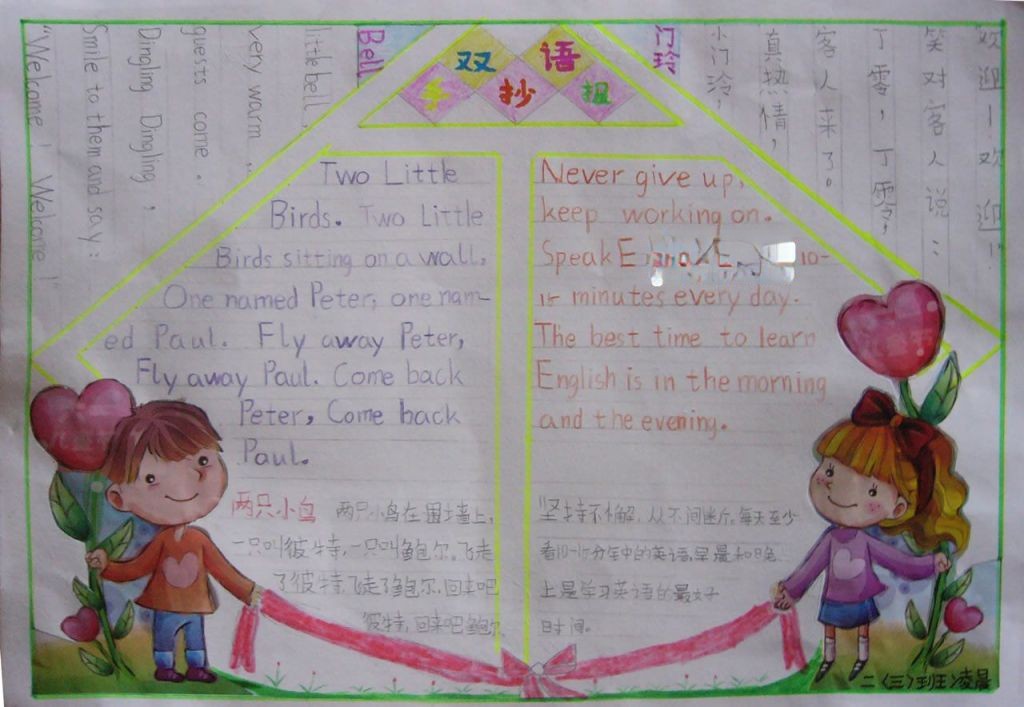 双语
手抄报
Bell
little bell,
very warm
guests come.
Dingling Dingling,
Smile to them and say:
"Welcome! Welcome!"
门玲
小门玲,
真热情,
客人来了。
丁零,丁零,
笑对客人说:
欢迎!欢迎!"
Two Little
Birds. Two Little
Birds sitting on a wall,
One named Peter, one nam-
ed Paul. Fly away Peter,
Fly away Paul. Come back
Peter, Come back
Paul.
两只小鸟 两只小鸟在围墙上,
一只叫彼特,一只叫鲍尔。飞走
了彼特,飞走了鲍尔。回来吧
彼特,回来吧鲍尔
Never give up,
keep working on.
Speak 10-
15 minutes every day.
The best time to learn
English is in the morning
and the evening.
坚持不懈,从不间断。每天至少
看10-15分钟的英语,早晨和晚
上是学习英语的最好
时间。
二(三)班凌晨